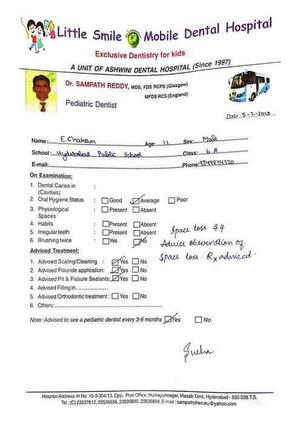 Little Smile Mobile Dental Hospital
Exclusive Dentistry for kids
A UNIT OF ASHWINI DENTAL HOSPITAL (Since 1997)
Dr. SAMPATH REDDY, MDS, FDS RCPS (Glasgow)
MFDS RCS (England)
Pediatric Dentist
Date:
Name: E. Age: 11 Sex: Male
School: Hyderabad Public School Class: 6 A
E-mail: Phone:
On Examination:
1. Dental Caries in :
(Cavities)
2. Oral Hygiene Status : Good Average Poor
3. Physiological : Present Absent
Spaces
4. Habits : Present Absent
5. Irregular teeth : Present Absent
6. Brushing twice : Yes No
Space loss 44
Advice observation of
space loss - Rx adviced.
Adviced Treatment:
1. Advised Scaling/Cleaning : Yes No
2. Advised Flouride application: Yes No
3. Advised Pit & Fissure Sealants: Yes No
4. Advised Filling in
5. Advised Orthodontic treatment : Yes No
6. Others:
Note: Advised to see a pediatric dentist every 3-6 months Yes No
Hospital Address-H.No. 10-3-304/13, Opp. Post Office, Humayunnagar, Masab Tank, Hyderabad - 500 028.T.S.